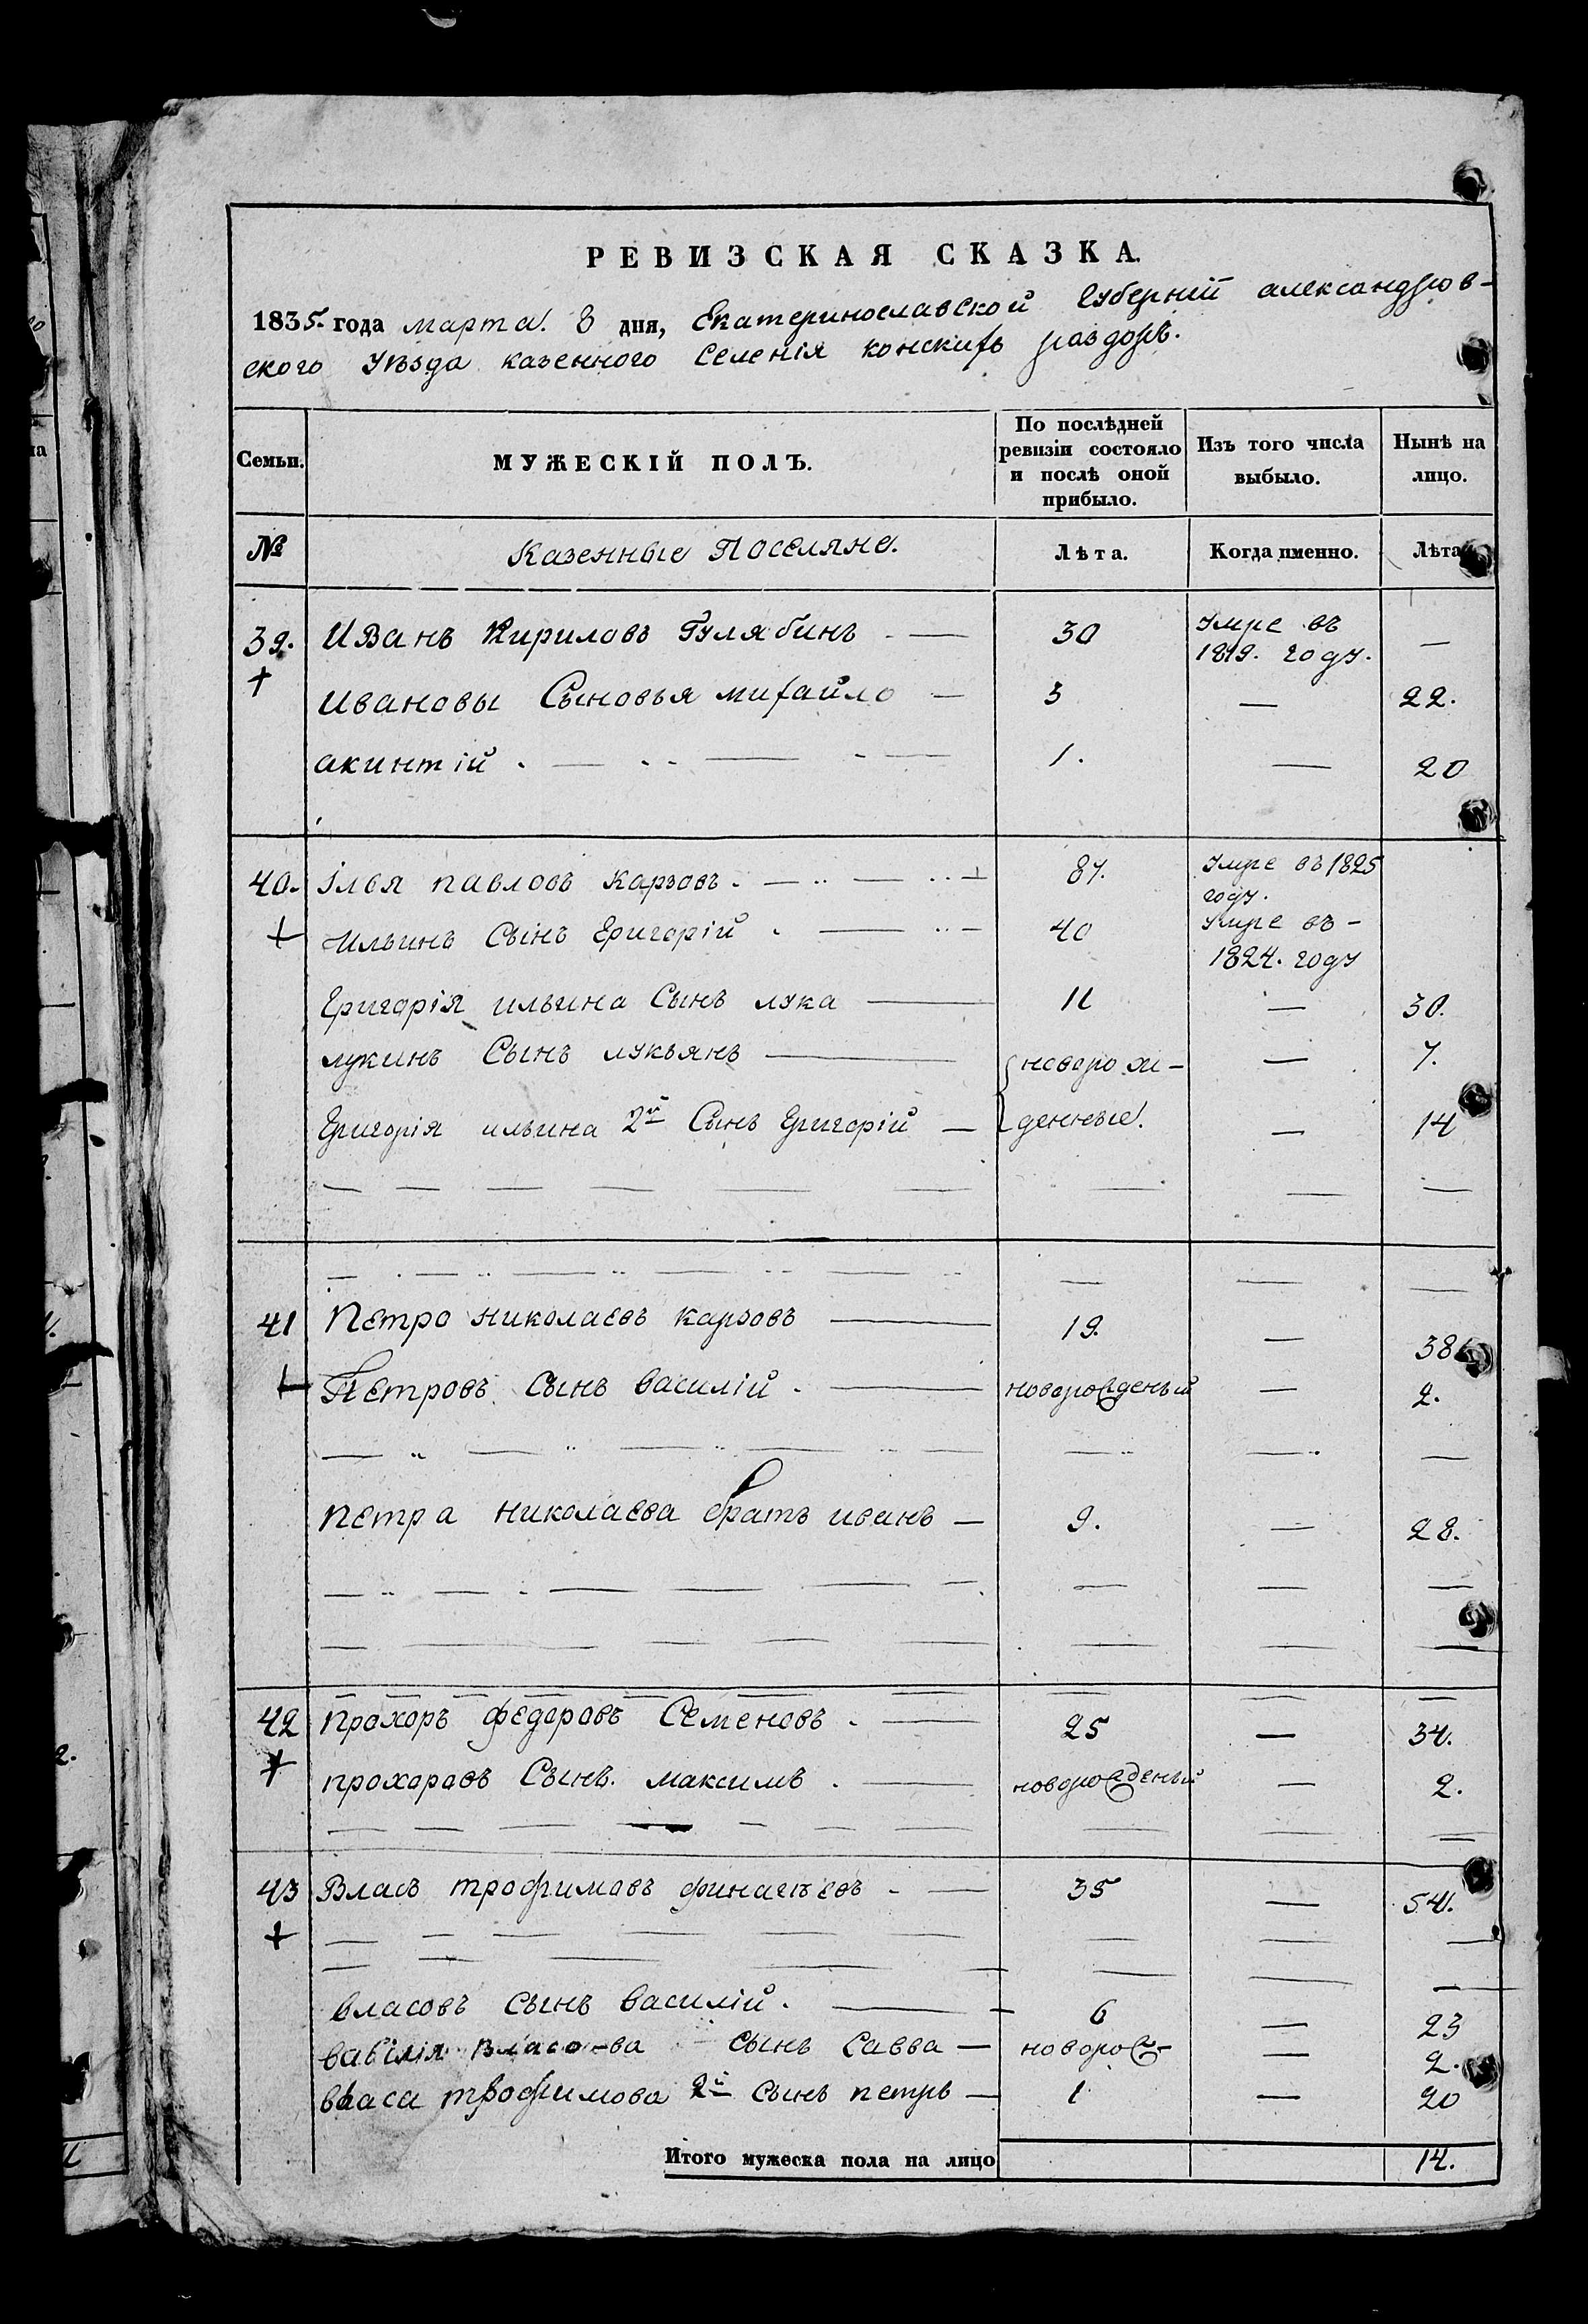 РЕВИЗСКАЯ СКАЗКА.
1835. года марта 8 дня, Екатеринославской Губерніи александров-
ского Уѣзда казенного Селенія конскихъ раздоръ.
Семьи. МУЖЕСКІЙ ПОЛЪ. По послѣдней ревизіи состояло и послѣ оной прибыло. Изъ того числа выбыло. Нынѣ на лицо.
№ Казенные Поселяне. Лѣта. Когда именно. Лѣта
39. Иванъ Кириловъ Гулябинъ 30 Умре въ 1819. году. —
Ивановы Сыновья михайло — 3 — 22.
акинтій 1. — 20
40. Ілья павловъ карзовъ 87. Умре въ 1825 году.
Ильинъ Сынъ Григорій 40 Умре въ - 1824. году
Григорія ильина Сынъ лука 11 — 30.
лукинъ Сынъ лукьянъ новорож- — 7.
Григорія ильина 2й Сынъ Григорій — денные. — 14
41 Петро николаевъ карзовъ 19. — 38
Петровъ Сынъ василій новорожденый — 2.
петра николаева братъ иванъ — 9. — 28.
42 прохоръ федоровъ Семеновъ 25 — 34.
прохоровъ Сынъ. максимъ новорожденый — 2.
43 Власъ трофимовъ 35 — 54.
власовъ сынъ василій. 6 — 23
василія власова сынъ савва — новорож- — 2.
власа трофимова 2й сынъ петръ — 1 — 20
Итого мужеска пола на лицо 14.